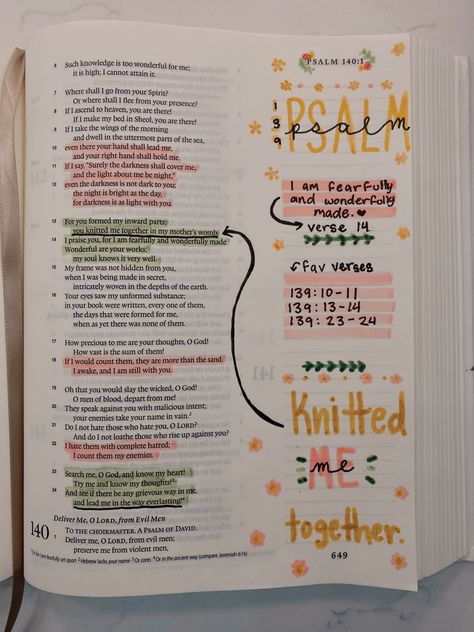 PSALM 140:1
6 Such knowledge is too wonderful for me;
it is high; I cannot attain it.
7 Where shall I go from your Spirit?
Or where shall I flee from your presence?
8 If I ascend to heaven, you are there!
If I make my bed in Sheol, you are there!
9 If I take the wings of the morning
and dwell in the uttermost parts of the sea,
10 even there your hand shall lead me,
and your right hand shall hold me.
11 If I say, "Surely the darkness shall cover me,
and the light about me be night,"
12 even the darkness is not dark to you;
the night is bright as the day,
for darkness is as light with you.
13 For you formed my inward parts;
you knitted me together in my mother's womb.
14 I praise you, for I am fearfully and wonderfully made.1
Wonderful are your works;
my soul knows it very well.
15 My frame was not hidden from you,
when I was being made in secret,
intricately woven in the depths of the earth.
16 Your eyes saw my unformed substance;
in your book were written, every one of them,
the days that were formed for me,
when as yet there was none of them.
17 How precious to me are your thoughts, O God!
How vast is the sum of them!
18 If I would count them, they are more than the sand.
I awake, and I am still with you.
19 Oh that you would slay the wicked, O God!
O men of blood, depart from me!
20 They speak against you with malicious intent;
your enemies take your name in vain.2
21 Do I not hate those who hate you, O LORD?
And do I not loathe those who rise up against you?
22 I hate them with complete hatred;
I count them my enemies.
23 Search me, O God, and know my heart!
Try me and know my thoughts!3
24 And see if there be any grievous way in me,
and lead me in the way everlasting!4
Deliver Me, O LORD, from Evil Men
140 TO THE CHOIRMASTER. A PSALM OF DAVID.
1 Deliver me, O LORD, from evil men;
preserve me from violent men,
1 Or for I am fearfully set apart 2 Hebrew lacks your name 3 Or cares 4 Or in the ancient way (compare Jeremiah 6:16)
139
PSALM
psalm
I am fearfully
and wonderfully
made.
verse 14
Fav verses
139:10-11
139:13-14
139:23-24
Knitted
ME
me
together.
649